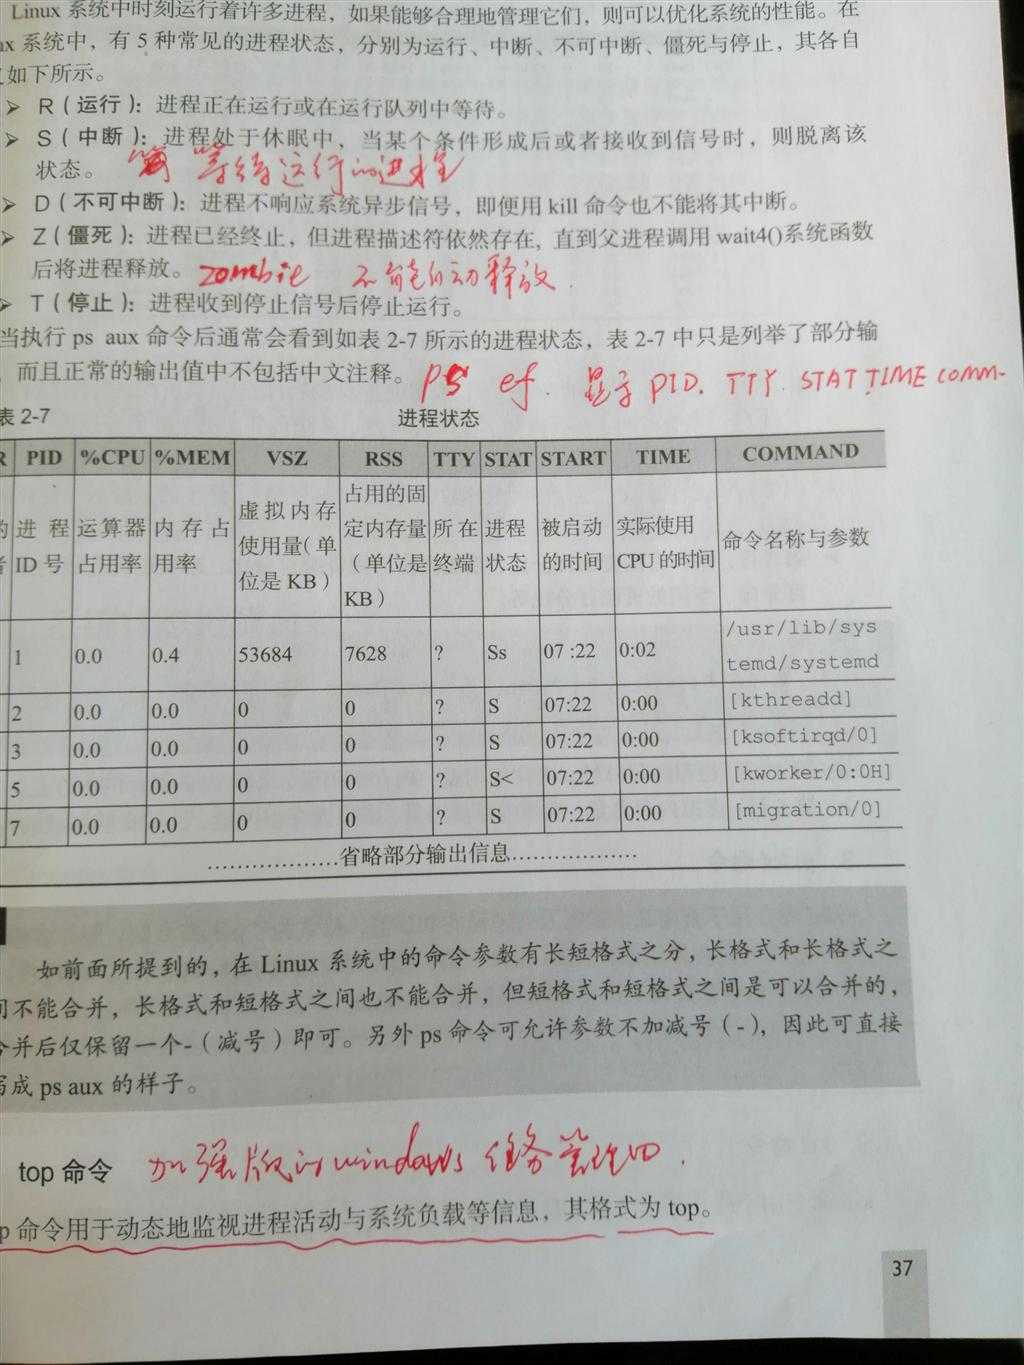 Linux 系统中时刻运行着许多进程，如果能够合理地管理它们，则可以优化系统的性能。在
ux 系统中，有 5 种常见的进程状态，分别为运行、中断、不可中断、僵死与停止，其各自
如下所示。
➢ R（运行）：进程正在运行或在运行队列中等待。
➢ S（中断）：进程处于休眠中，当某个条件形成后或者接收到信号时，则脱离该
状态。 等待运行的进程
➢ D（不可中断）：进程不响应系统异步信号，即便用 kill 命令也不能将其中断。
➢ Z（僵死）：进程已经终止，但进程描述符依然存在, 直到父进程调用 wait4()系统函数
后将进程释放。 zombie 不能自动释放.
➢ T（停止）：进程收到停止信号后停止运行。
当执行 ps aux 命令后通常会看到如表 2-7 所示的进程状态，表 2-7 中只是列举了部分输
，而且正常的输出值中不包括中文注释。 ps ef. 显示 PID. TTY. STAT TIME COMM-
表 2-7 进程状态
R PID %CPU %MEM VSZ RSS TTY STAT START TIME COMMAND
的 进程 ID 号 运算器占用率 内存占用率 虚拟内存使用量（单位是 KB） 占用的固定内存量（单位是 KB） 所在终端 进程状态 被启动的时间 实际使用 CPU 的时间 命令名称与参数
1 0.0 0.4 53684 7628 ? Ss 07 :22 0:02 /usr/lib/systemd/systemd
2 0.0 0.0 0 0 ? S 07:22 0:00 [kthreadd]
3 0.0 0.0 0 0 ? S 07:22 0:00 [ksoftirqd/0]
5 0.0 0.0 0 0 ? S< 07:22 0:00 [kworker/0:0H]
7 0.0 0.0 0 0 ? S 07:22 0:00 [migration/0]
………………省略部分输出信息………………
如前面所提到的，在 Linux 系统中的命令参数有长短格式之分，长格式和长格式之
间不能合并，长格式和短格式之间也不能合并，但短格式和短格式之间是可以合并的，
合并后仅保留一个-（减号）即可。另外 ps 命令可允许参数不加减号（-），因此可直接
写成 ps aux 的样子。
top 命令 加强版的windows 任务管理.
p 命令用于动态地监视进程活动与系统负载等信息，其格式为 top。
37